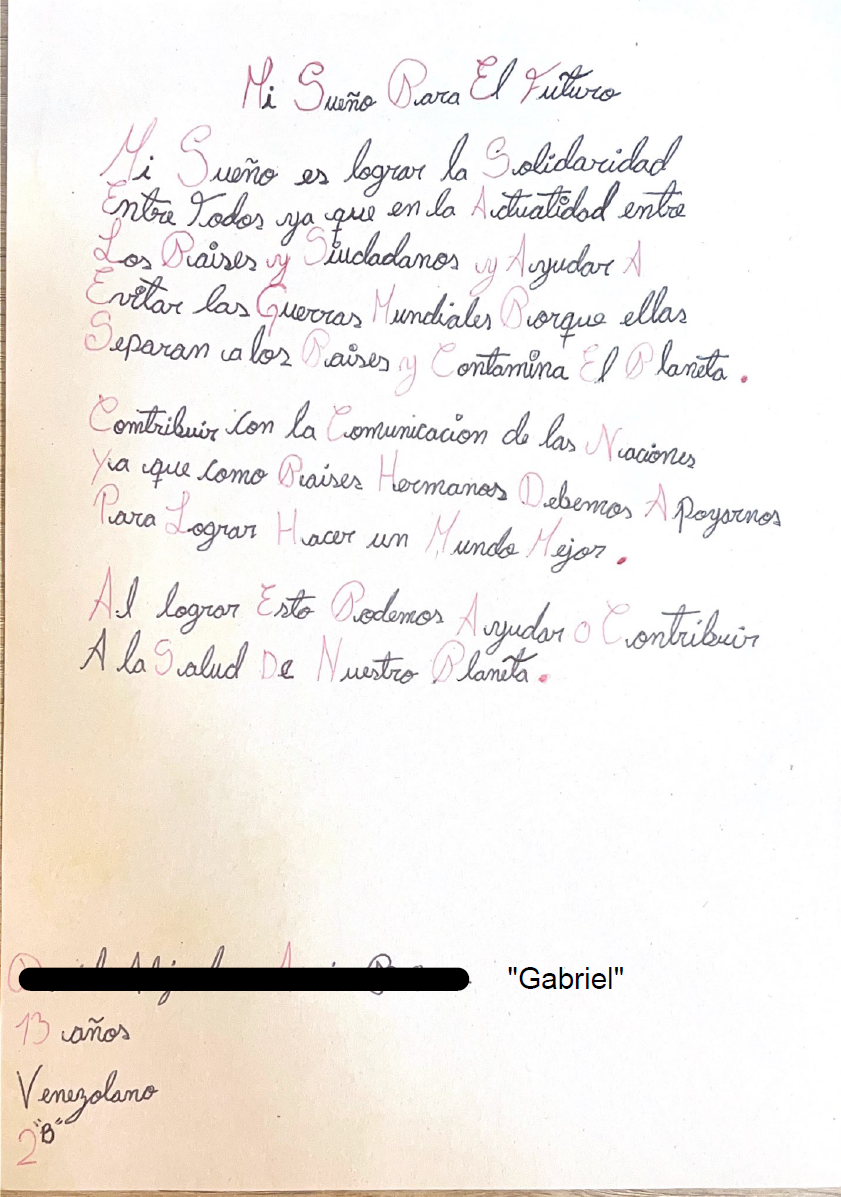 Mi Sueño Para El Futuro
Mi Sueño es lograr la Solidaridad
Entre Todos ya que en la Actuatidad entre
Los Paises y Siudadanos y Ayudar A
Evitar las Guerras Mundiales Porque ellas
Separan a los Paises y Contamina El Planeta.
Comtribuir con la Comunicacion de las Naciones
Ya que como Paises Hermanos Debemos Apoyarnos
Para Lograr Hacer un Mundo Mejor.
Al lograr Esto Podemos Ayudar o Contribuir
A la Salud De Nuestro Planeta.
"Gabriel"
13 años
Venezolano
2"B"